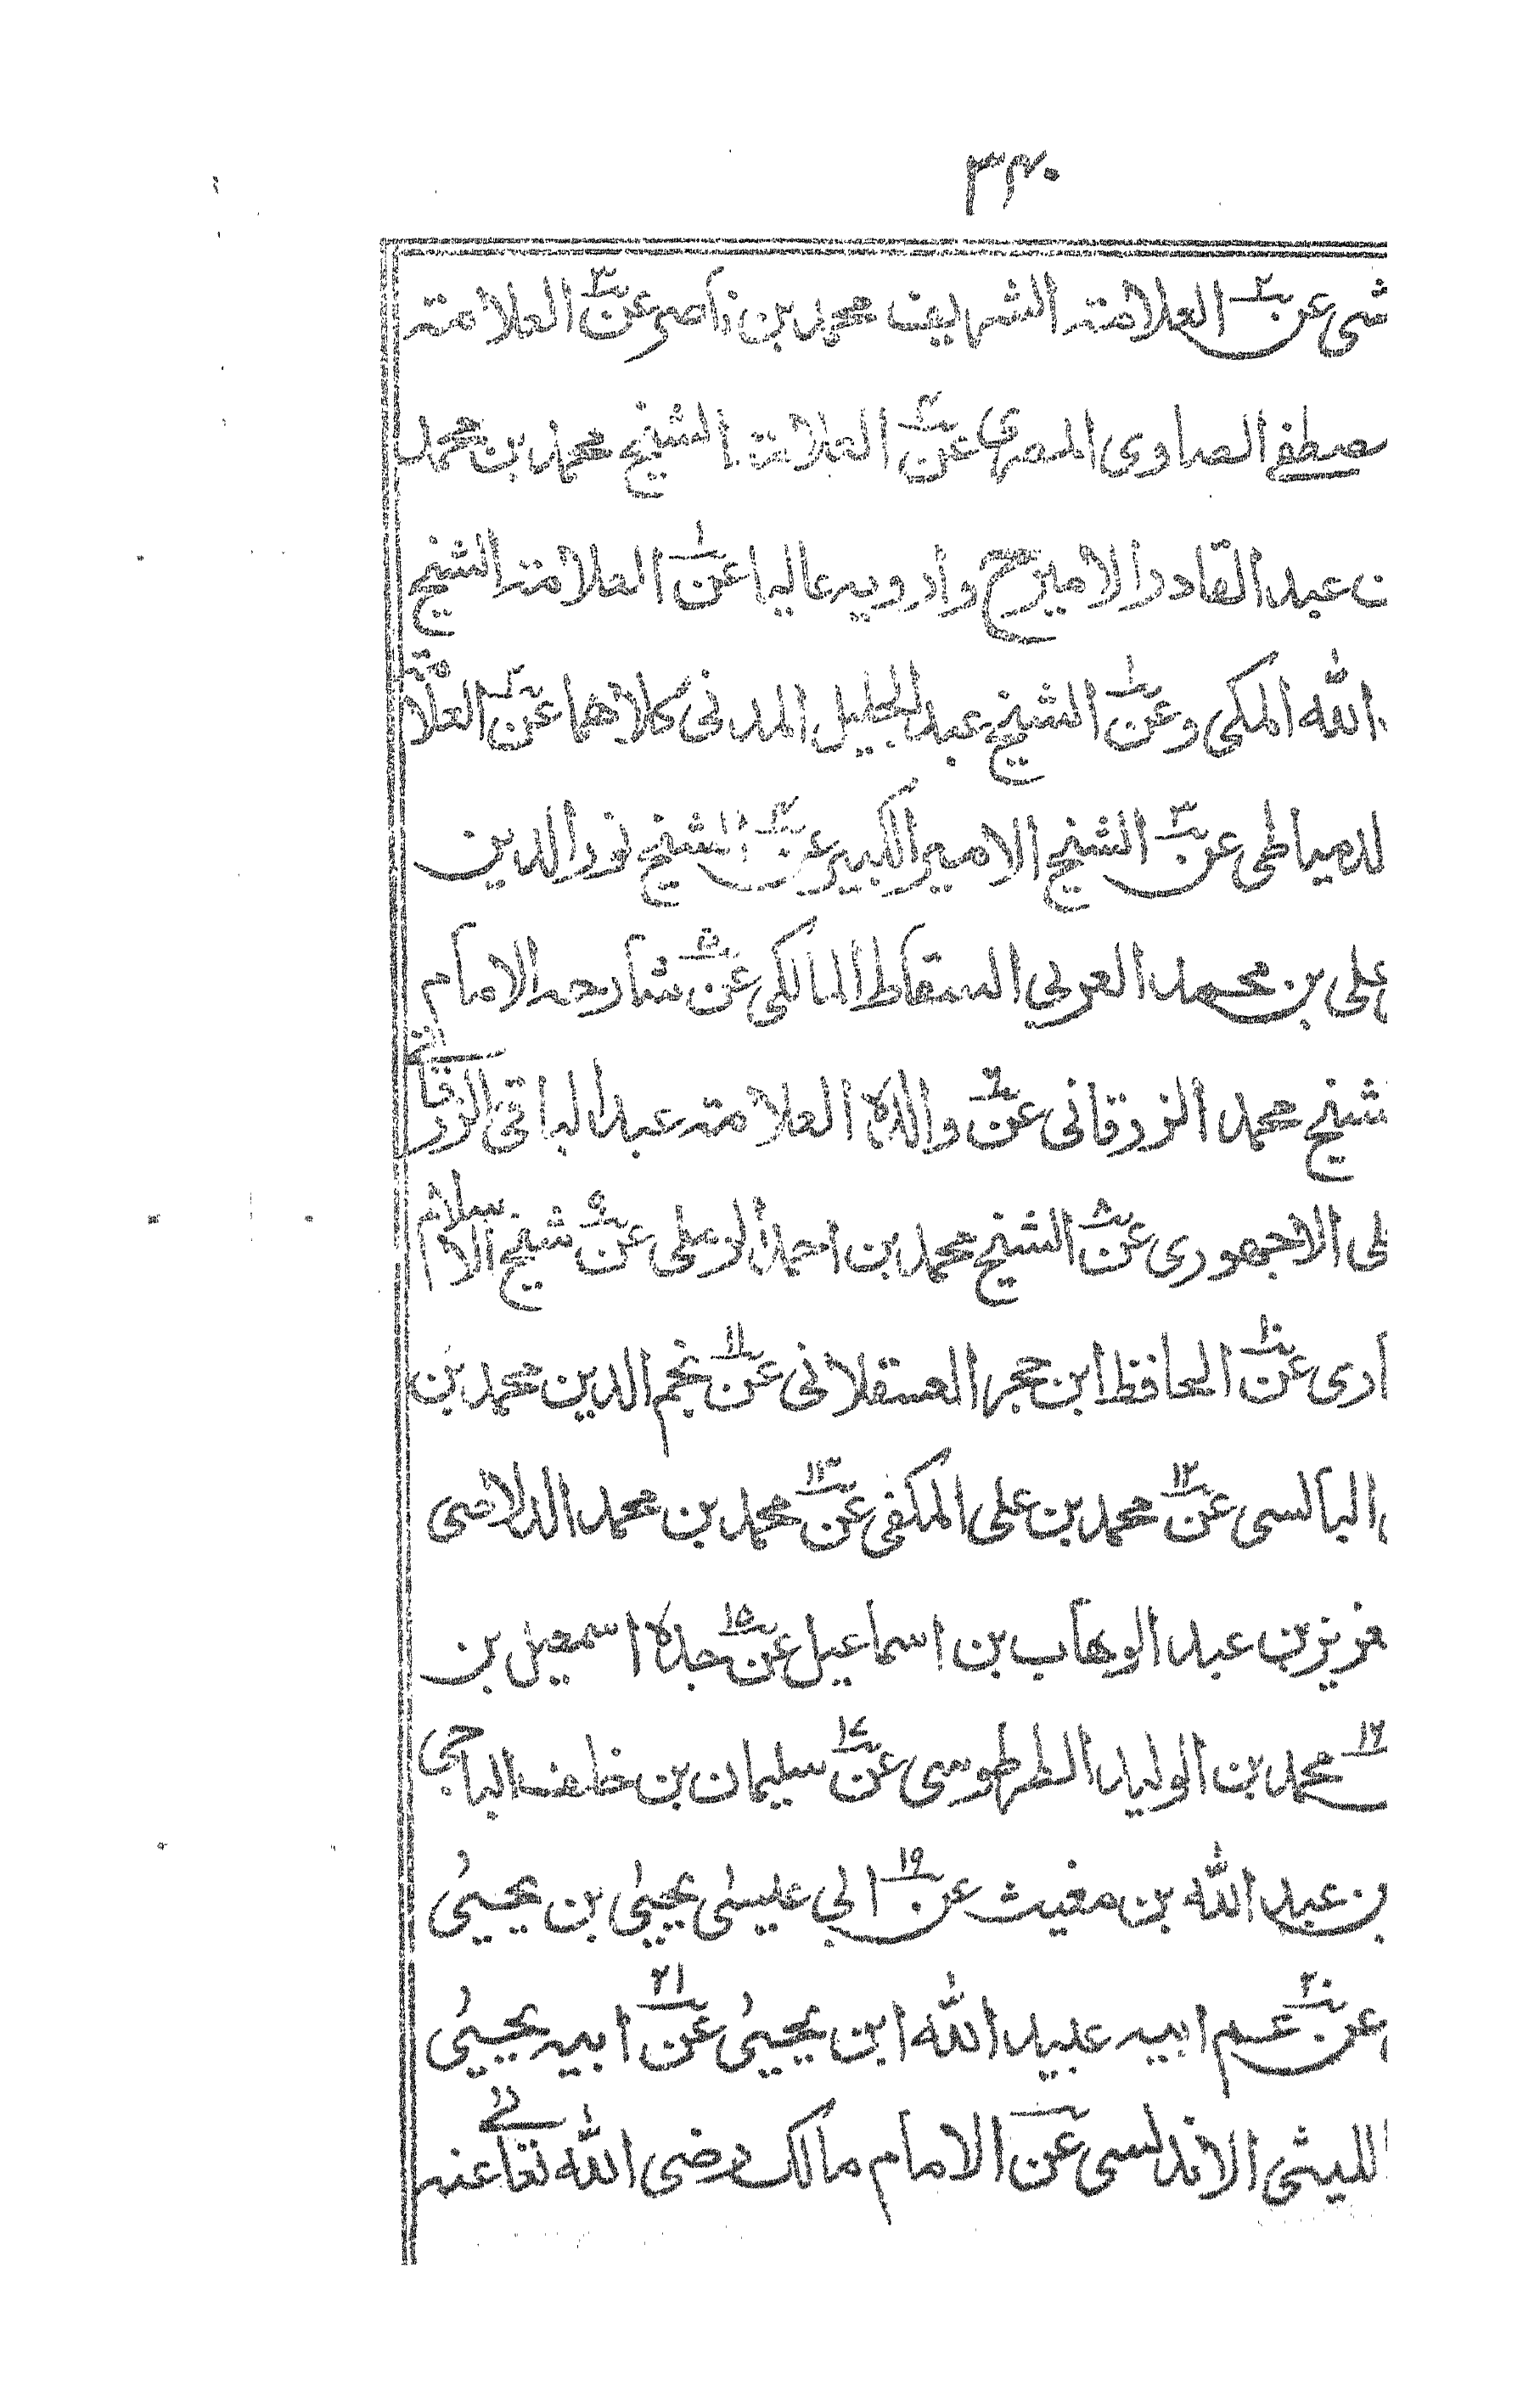 ٣٤٠
شى عن٢ العلامة الشريف محمد بن ناصر عن٣ العلامة
مصطفى الصاوى المصرى عن٤ العلامة الشيخ محمد بن محمد
ن عبد القادر الامير ح وارويه عاليا عن١ العلامة الشيخ
الله المكى وعن١ الشيخ عبد الجليل المدنى كلاهما عن٢ العلامة
لدمياطى عن٣ الشيخ الامير الكبير عن٤ الشيخ نور الدين
على بن محمد العربي السقاط المالكى عن٥ شارحه الامام
لشيخ محمد الزرقانى عن٦ والده العلامة عبد الباقى الزرقانى
لى الاجهورى عن٨ الشيخ محمد بن احمد الرملى عن٩ شيخ الاسلام
ارى عن١٠ الحافظ ابن حجر العسقلانى عن١١ نجم الدين محمد بن
البالسى عن١٢ محمد بن على المكفى عن١٣ محمد بن محمد الدلاصى
عزيز بن عبد الوهاب بن اسماعيل عن١٥ جده اسمعيل بن
١٦ محمد بن الوليد الطرطوسى عن١٧ سليمان بن خلف الباجي
بن عبد الله بن مغيث عن١٩ ابي عيسى يحيى بن يحيى
عن٢٠ عم ابيه عبيد الله ابن يحيى عن٢١ ابيه يحيى
الليثى الاندلسى عن الامام مالك رضى الله تعالى عنه